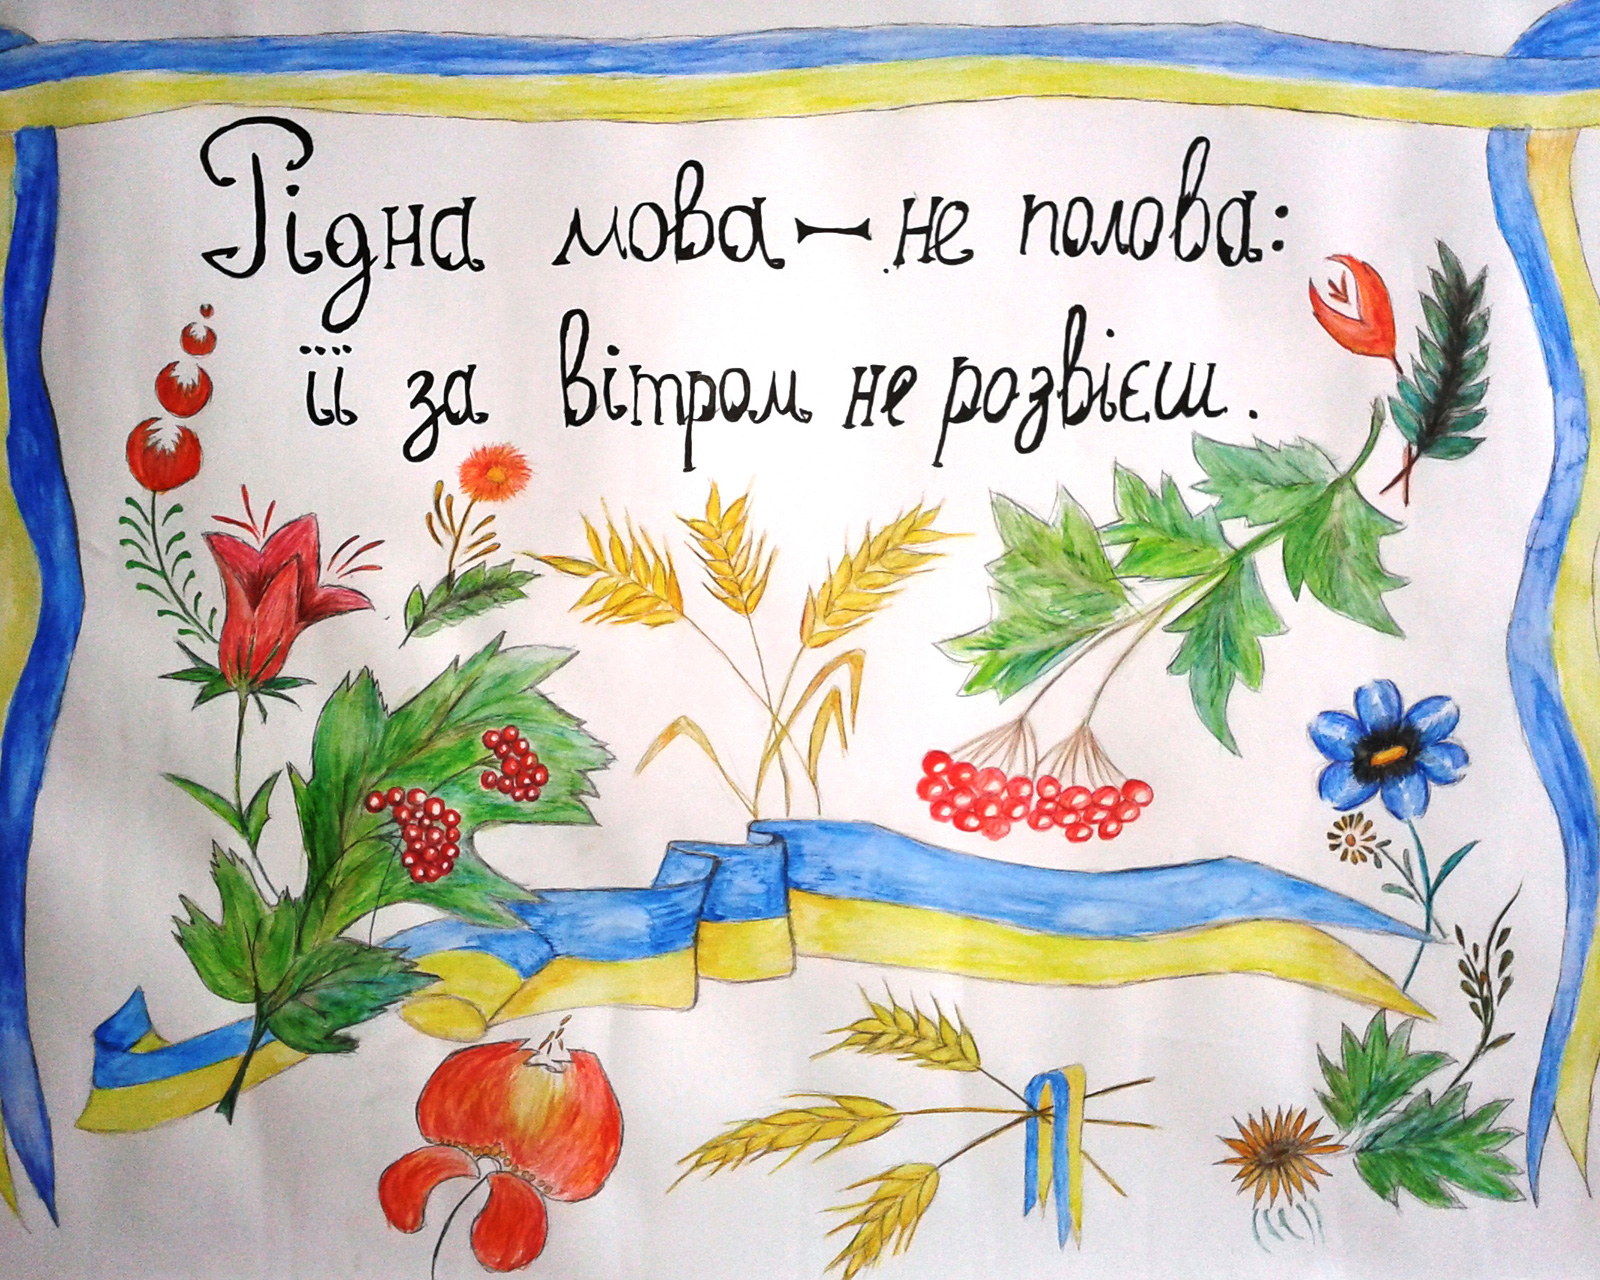 Рідна мова – не полова:
її за вітром не розвієш.